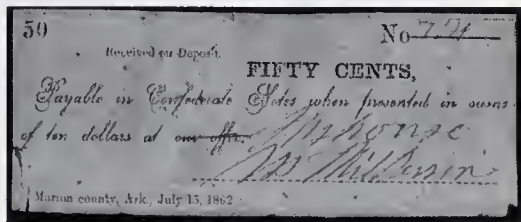 50 No
Received on Deposit.
FIFTY CENTS,
Payable in Confederate Notes when presented in sums
of ten dollars at our office.
Marion county, Ark., July 15, 1862